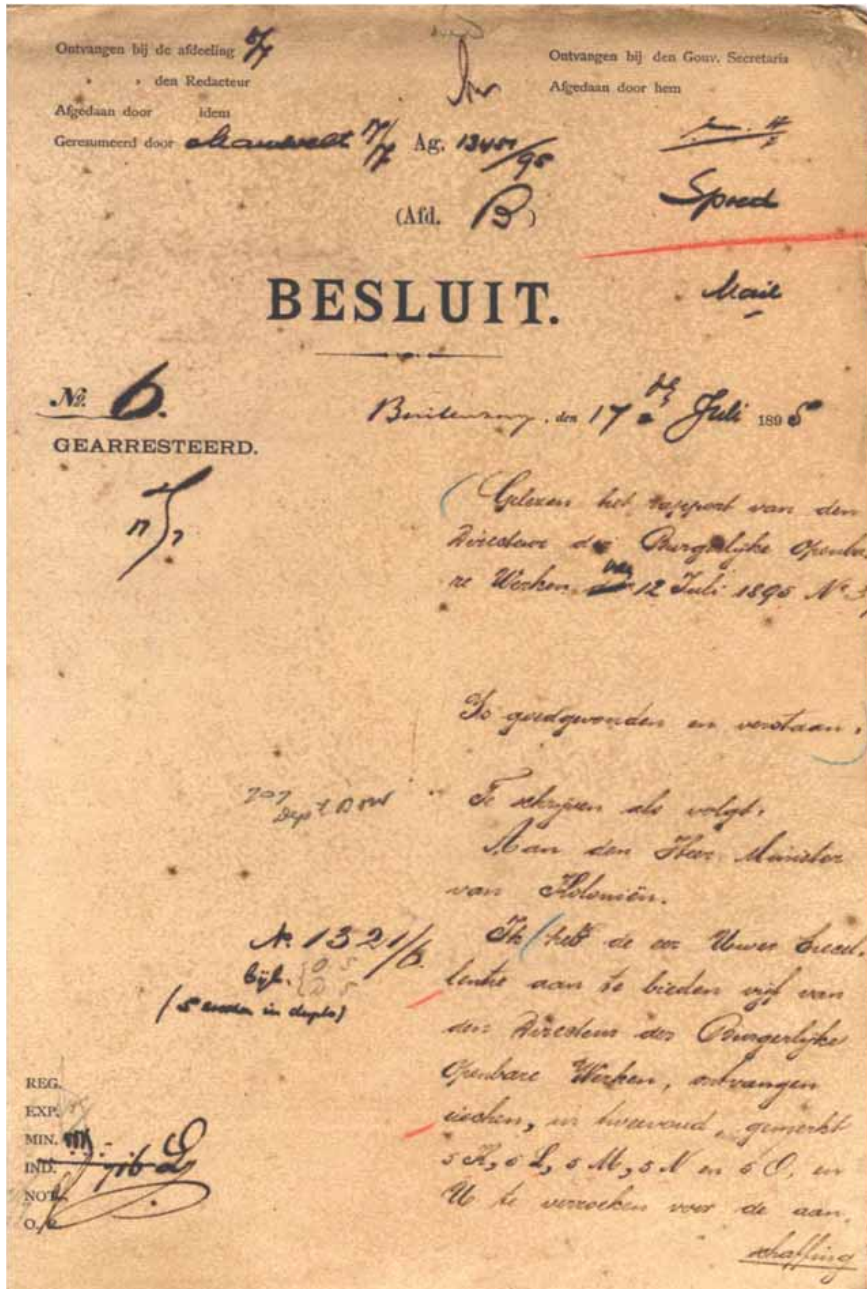 Ontvangen bij de afdeeling
den Redacteur
Afgedaan door idem
Geresumeerd door
Ag. 13451/95
(Afd. B)
Ontvangen bij den Gouv. Secretaris
Afgedaan door hem
Spoed
Mail
BESLUIT.
No. 6.
GEARRESTEERD.
Buitenzorg, den 17 de Juli 1895
Gelezen het rapport van den
Directeur der Burgerlijke Openba
re Werken van 12 Juli 1895 No
Is goedgevonden en verstaan,
Te schrijven als volgt,
Aan den Heer Minister
van Koloniën.
No. 1321/6.
Bijl.
(5 in duplo)
Ik heb de eer Uwer Excel,
lentie aan te bieden vijf van
den Directeur der Burgerlijke
Openbare Werken, ontvangen
eischen, in tweevoud, gemerkt
5 K, 5 L, 5 M, 5 N en 5 O, en
U te verzoeken voor de aan,
schaffing
REG.
EXP.
MIN.
IND.
NOT.